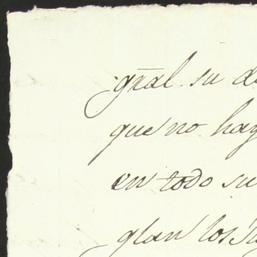 gral. su d
que no hay
en todo su
glan los